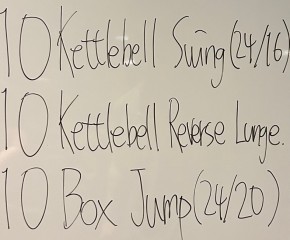 10 Kettlebell Swing (24/16)
10 Kettlebell Reverse Lunge.
10 Box Jump (24/20)